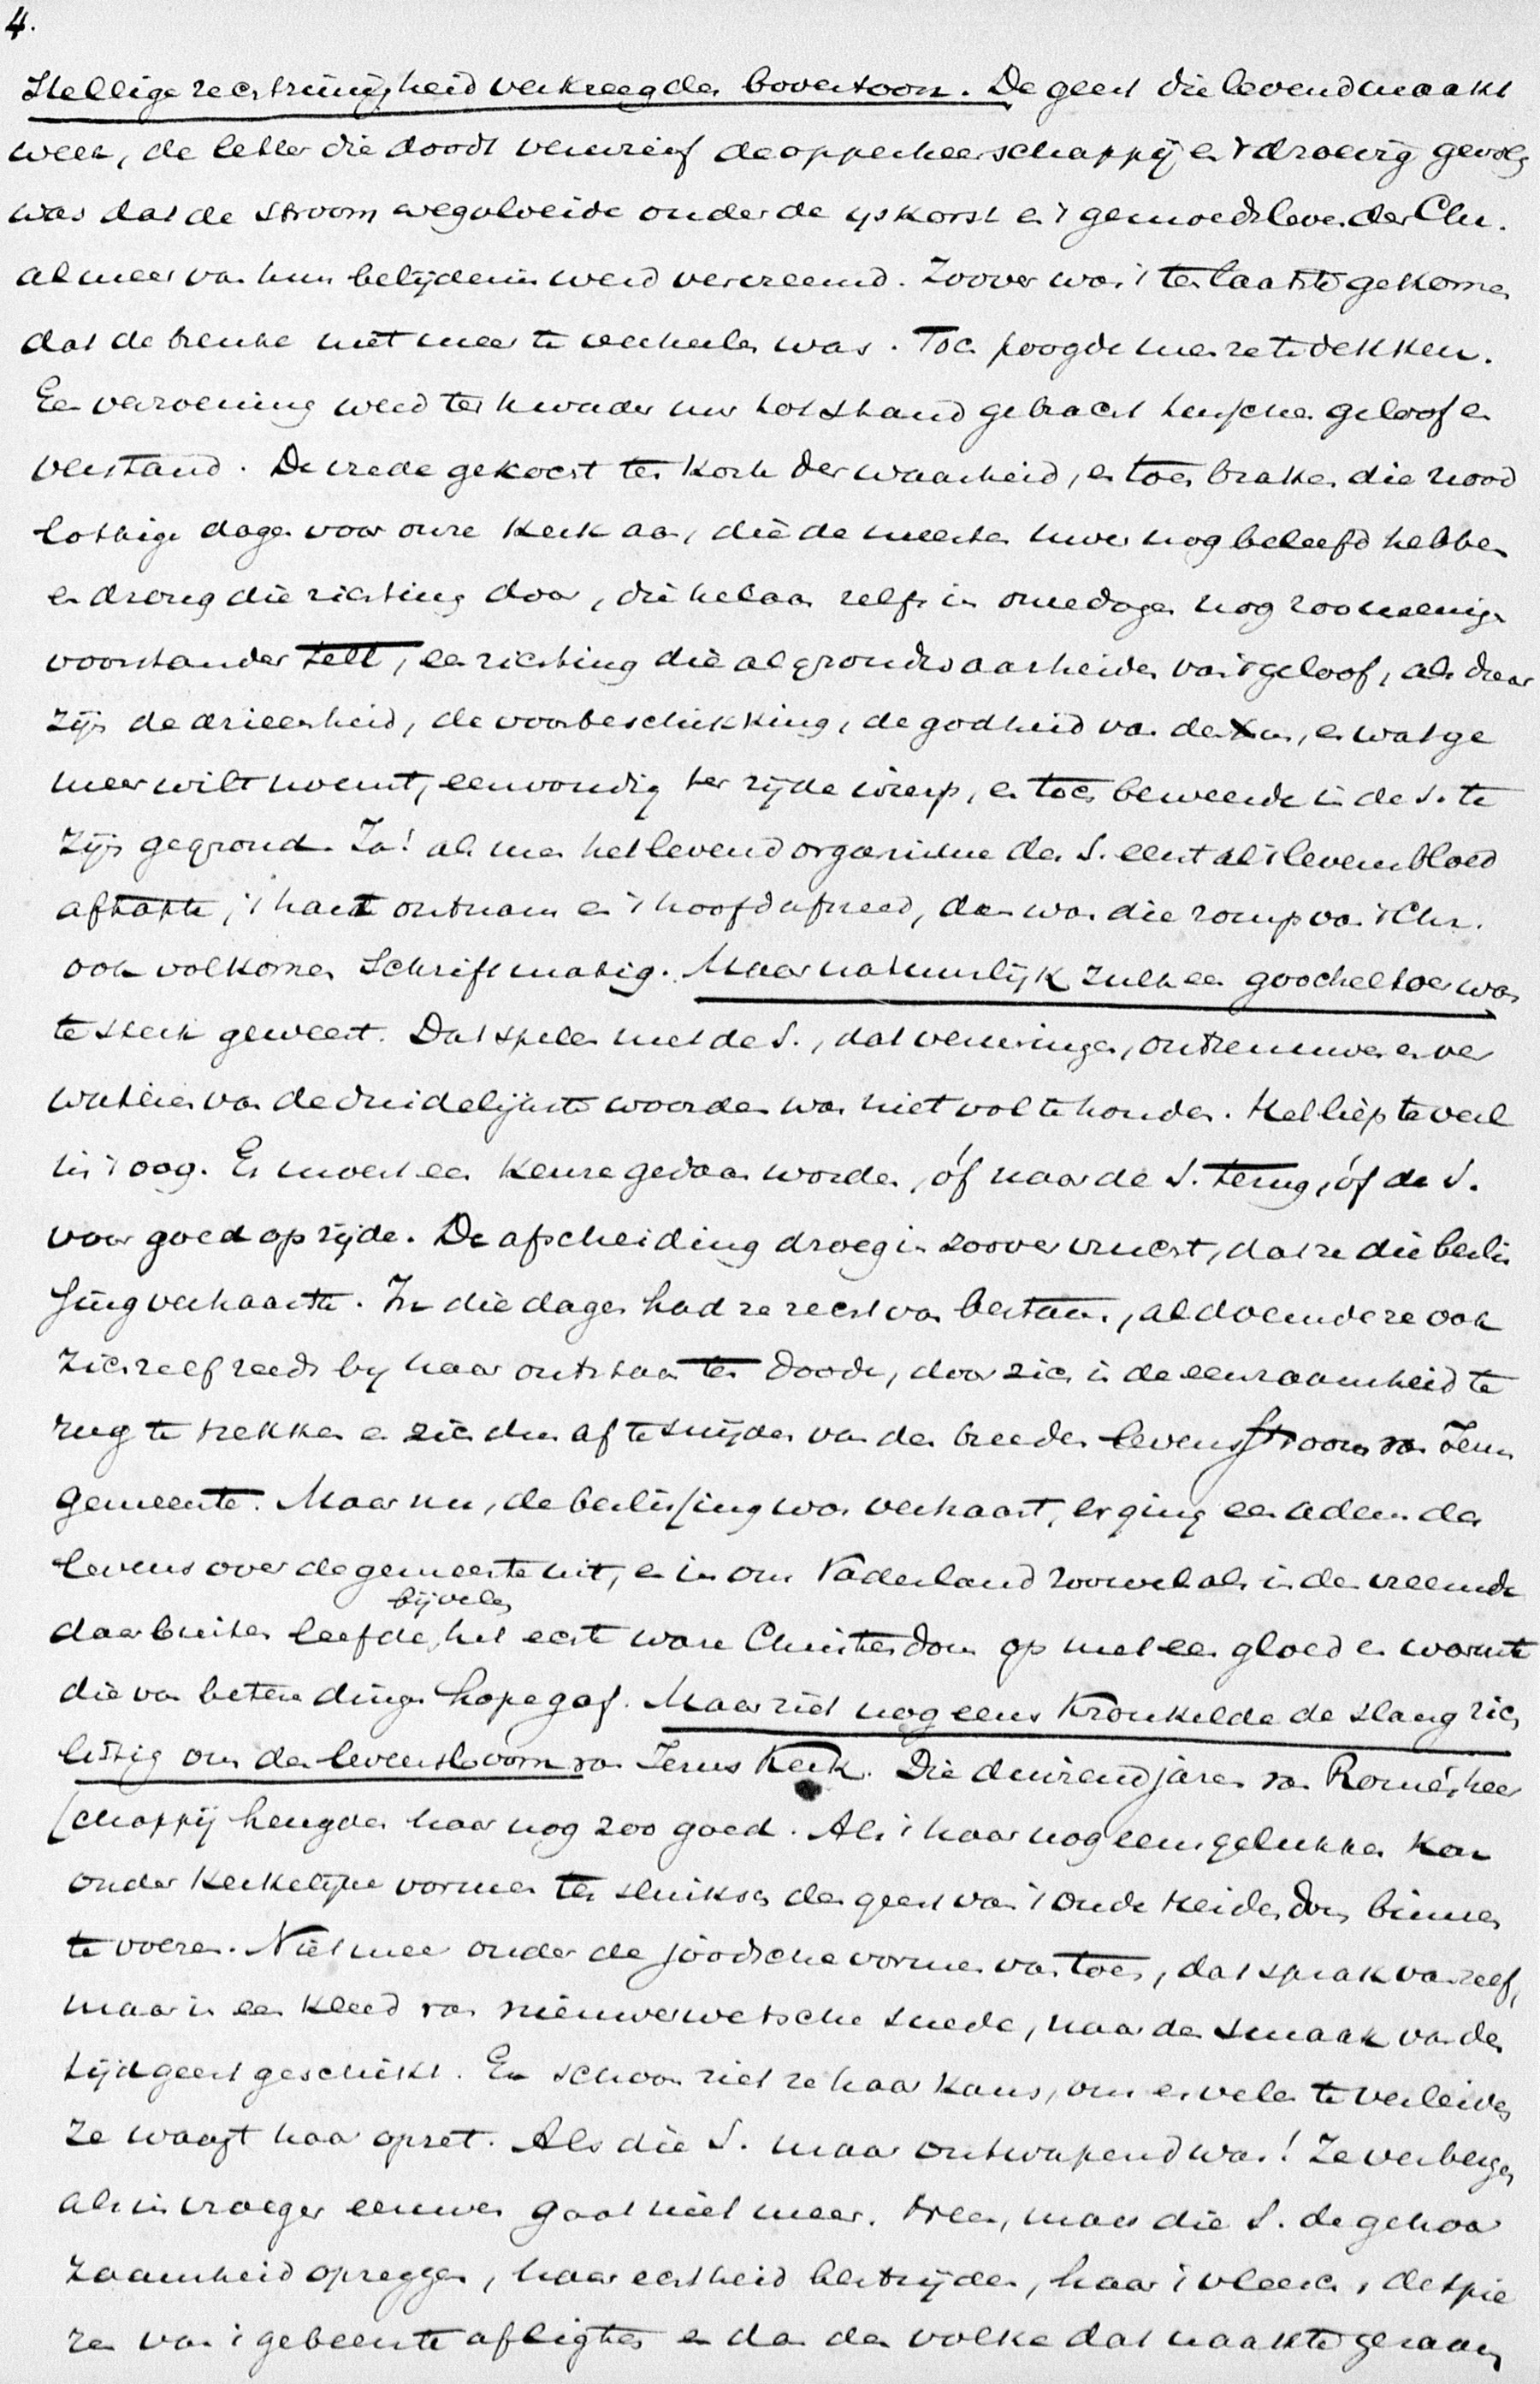 4.
Stellige rechtzinnigheid verkreeg den boventoon. De geest die levend maakt
week, de letter die doodt verwierf de opperheerschappij en 't droevig gevolg
was dat de stroom wegvloeide onder de ijskorst en 't gemoedsleven der Chr.
al meer van hun belijdenis werd vervreemd. Zoover was 't ten laatste gekomen
dat de breuke niet meer te verheelen was. Toch poogde men ze te dekken.
Een verzoening werd ter kwader uur tot stand gebracht tusschen geloof en
verstand. De vrede gekocht ten koste der waarheid, en toen braken die nood
lottige dagen voor onze kerk aan, die de meesten uwer nog beleefd hebben
en drong die richting door, die helaas zelfs in onze dagen nog zoo menigen
voorstander telt, een richting die al grondwaarheden van 't geloof, als daar
zijn de drieenheid, de voorbeschikking, de godheid van den X us, en wat ge
meer wilt noemt, eenvoudig ter zijde wierp, en toch beweerde in de S. te
zijn gegrond. Ja! als men het levend organisme der S. eerst al 't levensbloed
aftapte, 't hart ontnam en 't hoofd afsneed, dan was die romp van 't Chr.
ook volkomen Schriftmatig. Maar natuurlijk zulk een goocheltoer was
te sterk geweest. Dat spelen met de S., dat verwringen, ontzenuwen en ver
wateren van de duidelijkste woorden was niet vol te houden. Het liep te veel
in 't oog. Er moest een keuze gedaan worden, óf naar de S. terug, óf de S.
voor goed op zijde. De afscheiding droeg in zoover vrucht, dat ze die beslis
sing verhaastte. In die dagen had ze recht van bestaan, al doemde ze ook
zich zelf reeds bij haar ontstaan ten doode, door zich in de eenzaamheid te
rug te trekken en zich dus af te snijden van den breeden levensstroom van Jezus
gemeente. Maar nu, de beslissing was verhaast, er ging een adem des
levens over de gemeente uit, en in ons Vaderland zoowel als in den vreemde
bij velen
daarbuiten leefde het echt ware Christendom op met een gloed en warmte
die van betere dingen hope gaf. Maar ziet nog eens kronkelde de slang zich
listig om den levensboom van Jezus Kerk. Die duizend jaren van Rome's heer
schappij heugden haar nog zoo goed. Als 't haar nog eens gelukken kon
onder kerkelijke vormen ter sluiksch den geest van 't oude Heidendom binnen
te voeren. Niet meer onder de joodsche vormen van toen, dat sprak van zelf,
maar in een kleed van nieuwerwetsche snede, naar den smaak van den
tijdgeest geschikt. En schoon ziet ze haar kans, om er velen te verleiden
Ze waagt haar opzet. Als die S. maar ontwapend was! Ze verbergen
als in vroeger eeuwen gaat niet meer. Neen, maar die S. de gehoor
zaamheid opzeggen, haar echtheid bestrijden, haar 't vleesch, de spie
ren van 't gebeente afligten en dan den volke dat naakte geraam